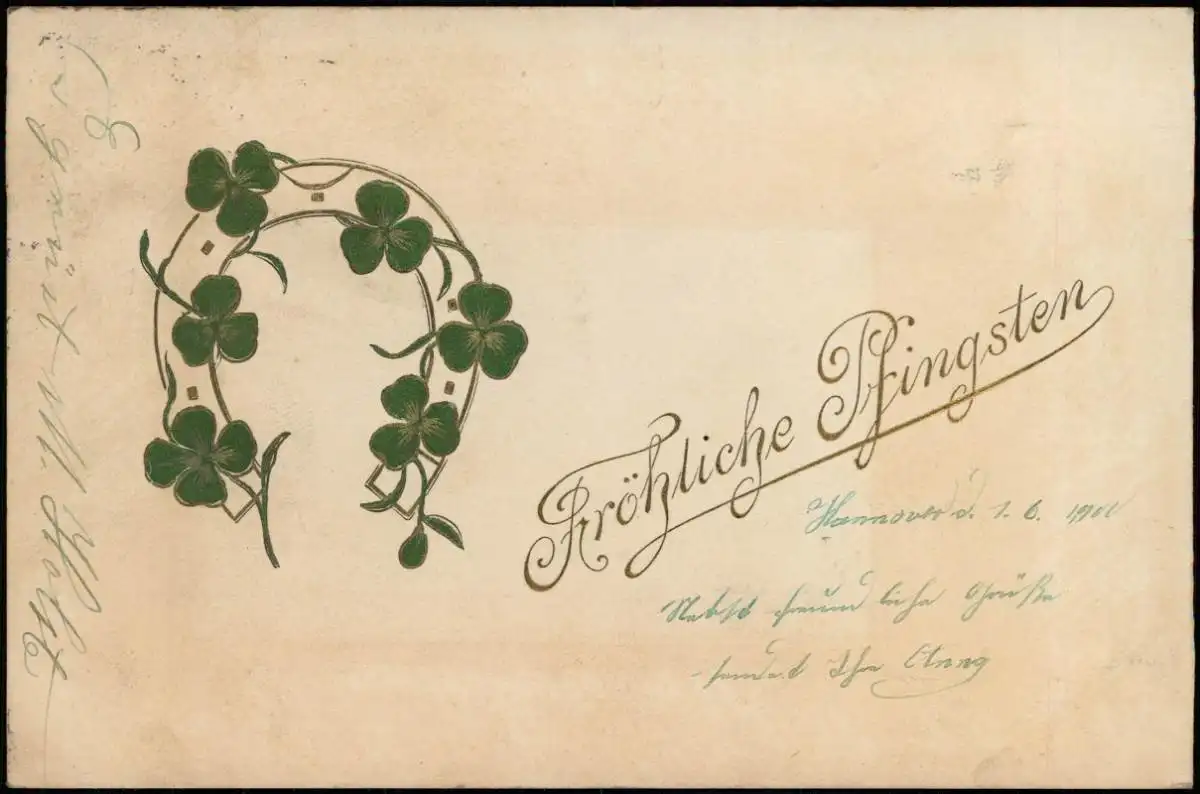 Fröhliche Pfingsten
Hannover d. 1. 6. 1901
Nebst freundliche Grüße
sendet Ihr
grüßt M.